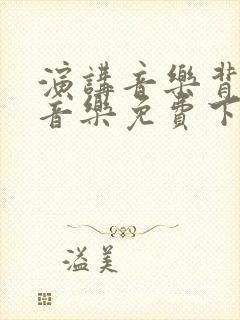 演講音樂背
音樂免費下
溢美